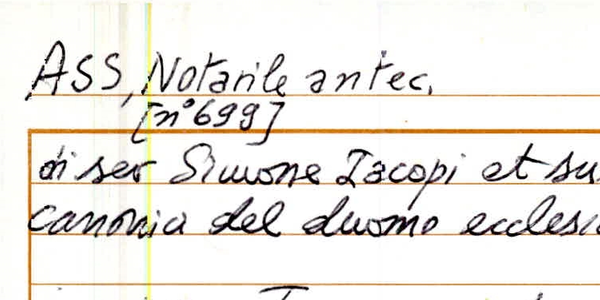 ASS, Notarile antec.
[n° 699]
di ser Simone Iacopi et su
canonica del duomo eccles